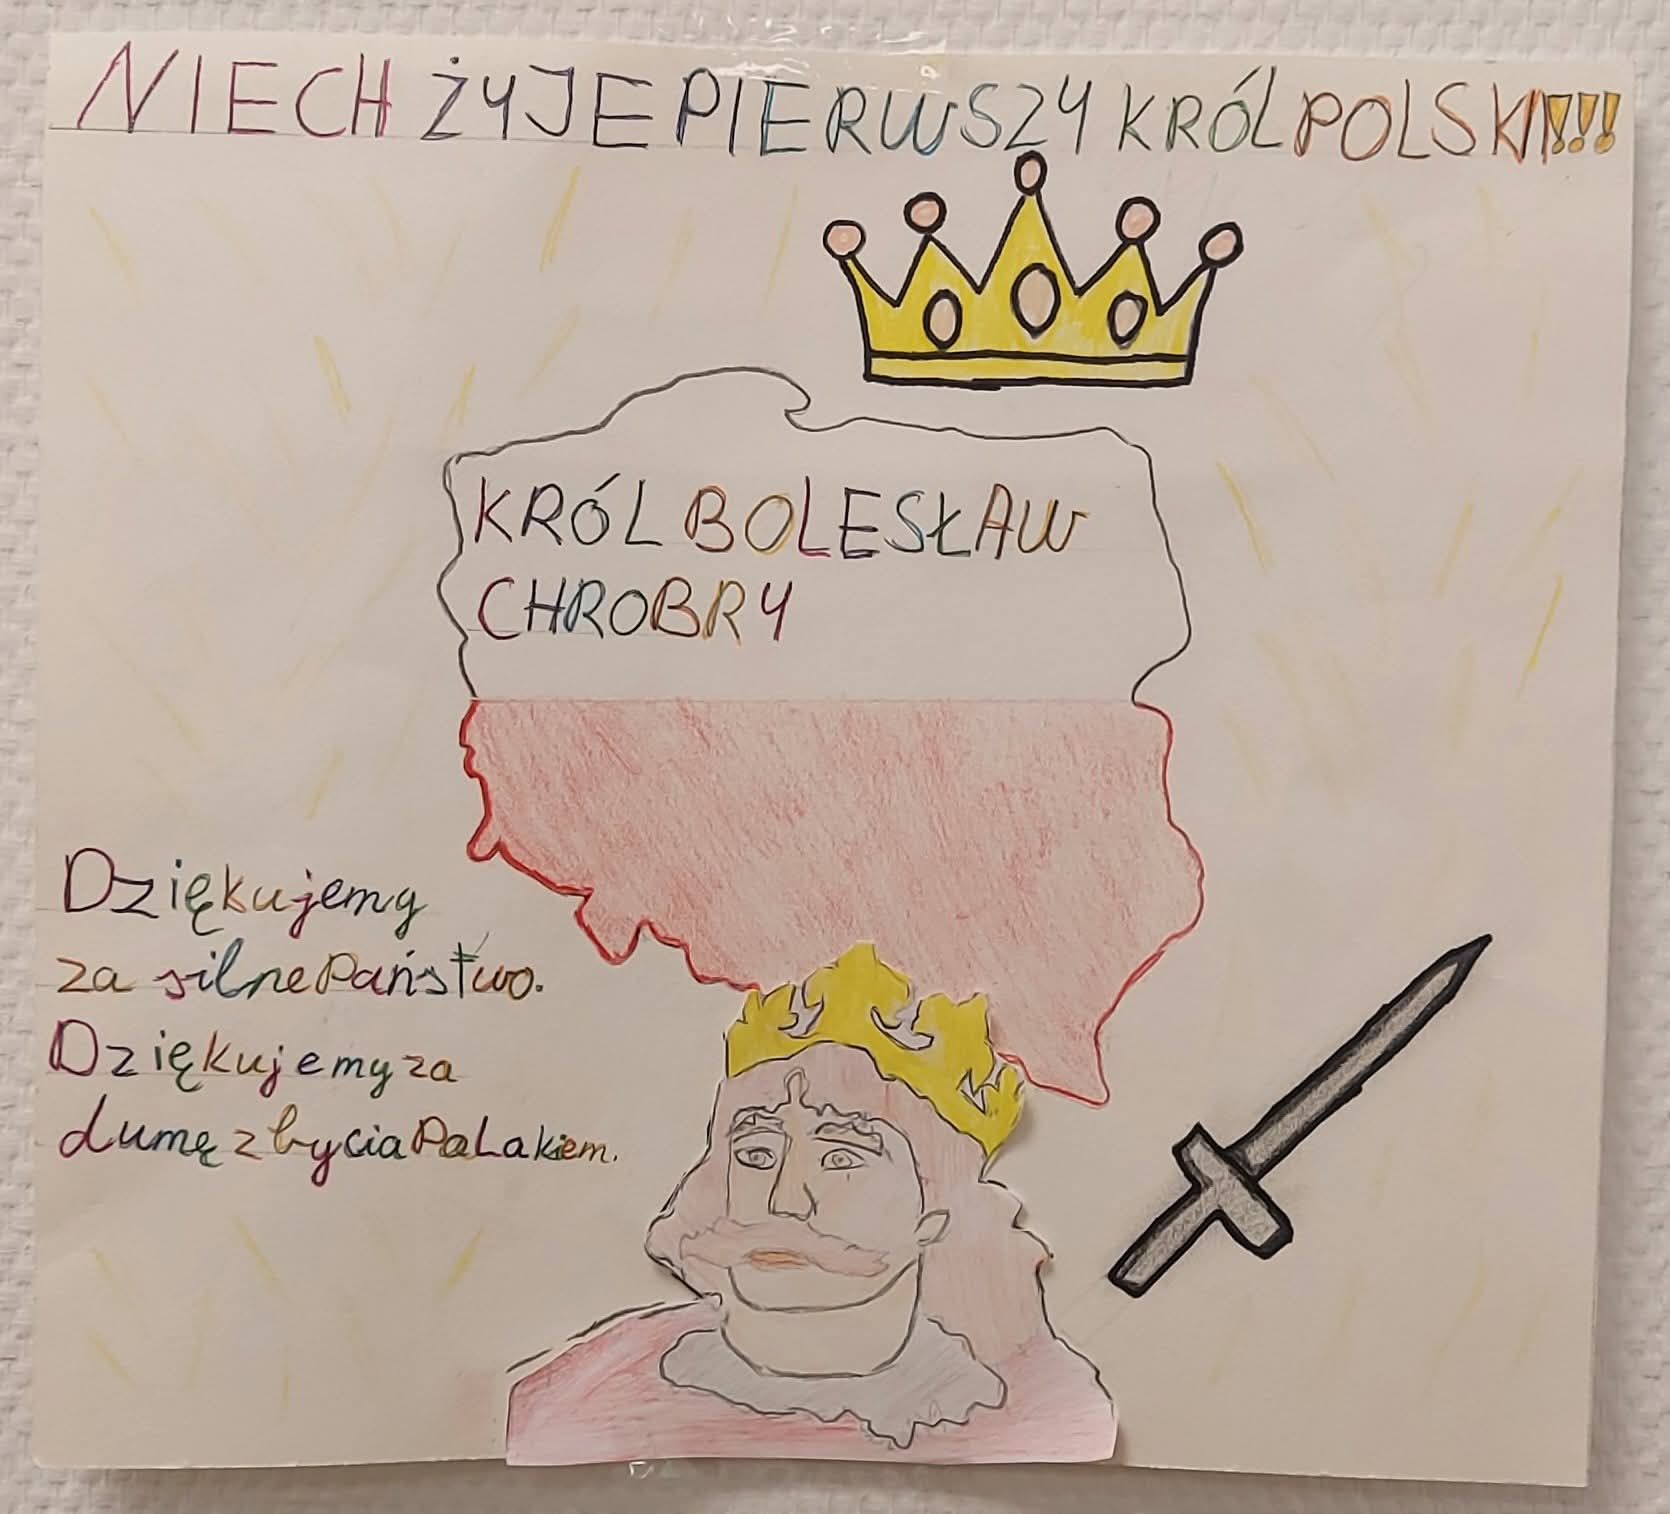 NIECH ŻYJE PIERWSZY KRÓL POLSKI!!!
KRÓL BOLESŁAW
CHROBRY
Dziękujemy
za silne Państwo.
Dziękujemy za
dumę z bycia PoLakiem.